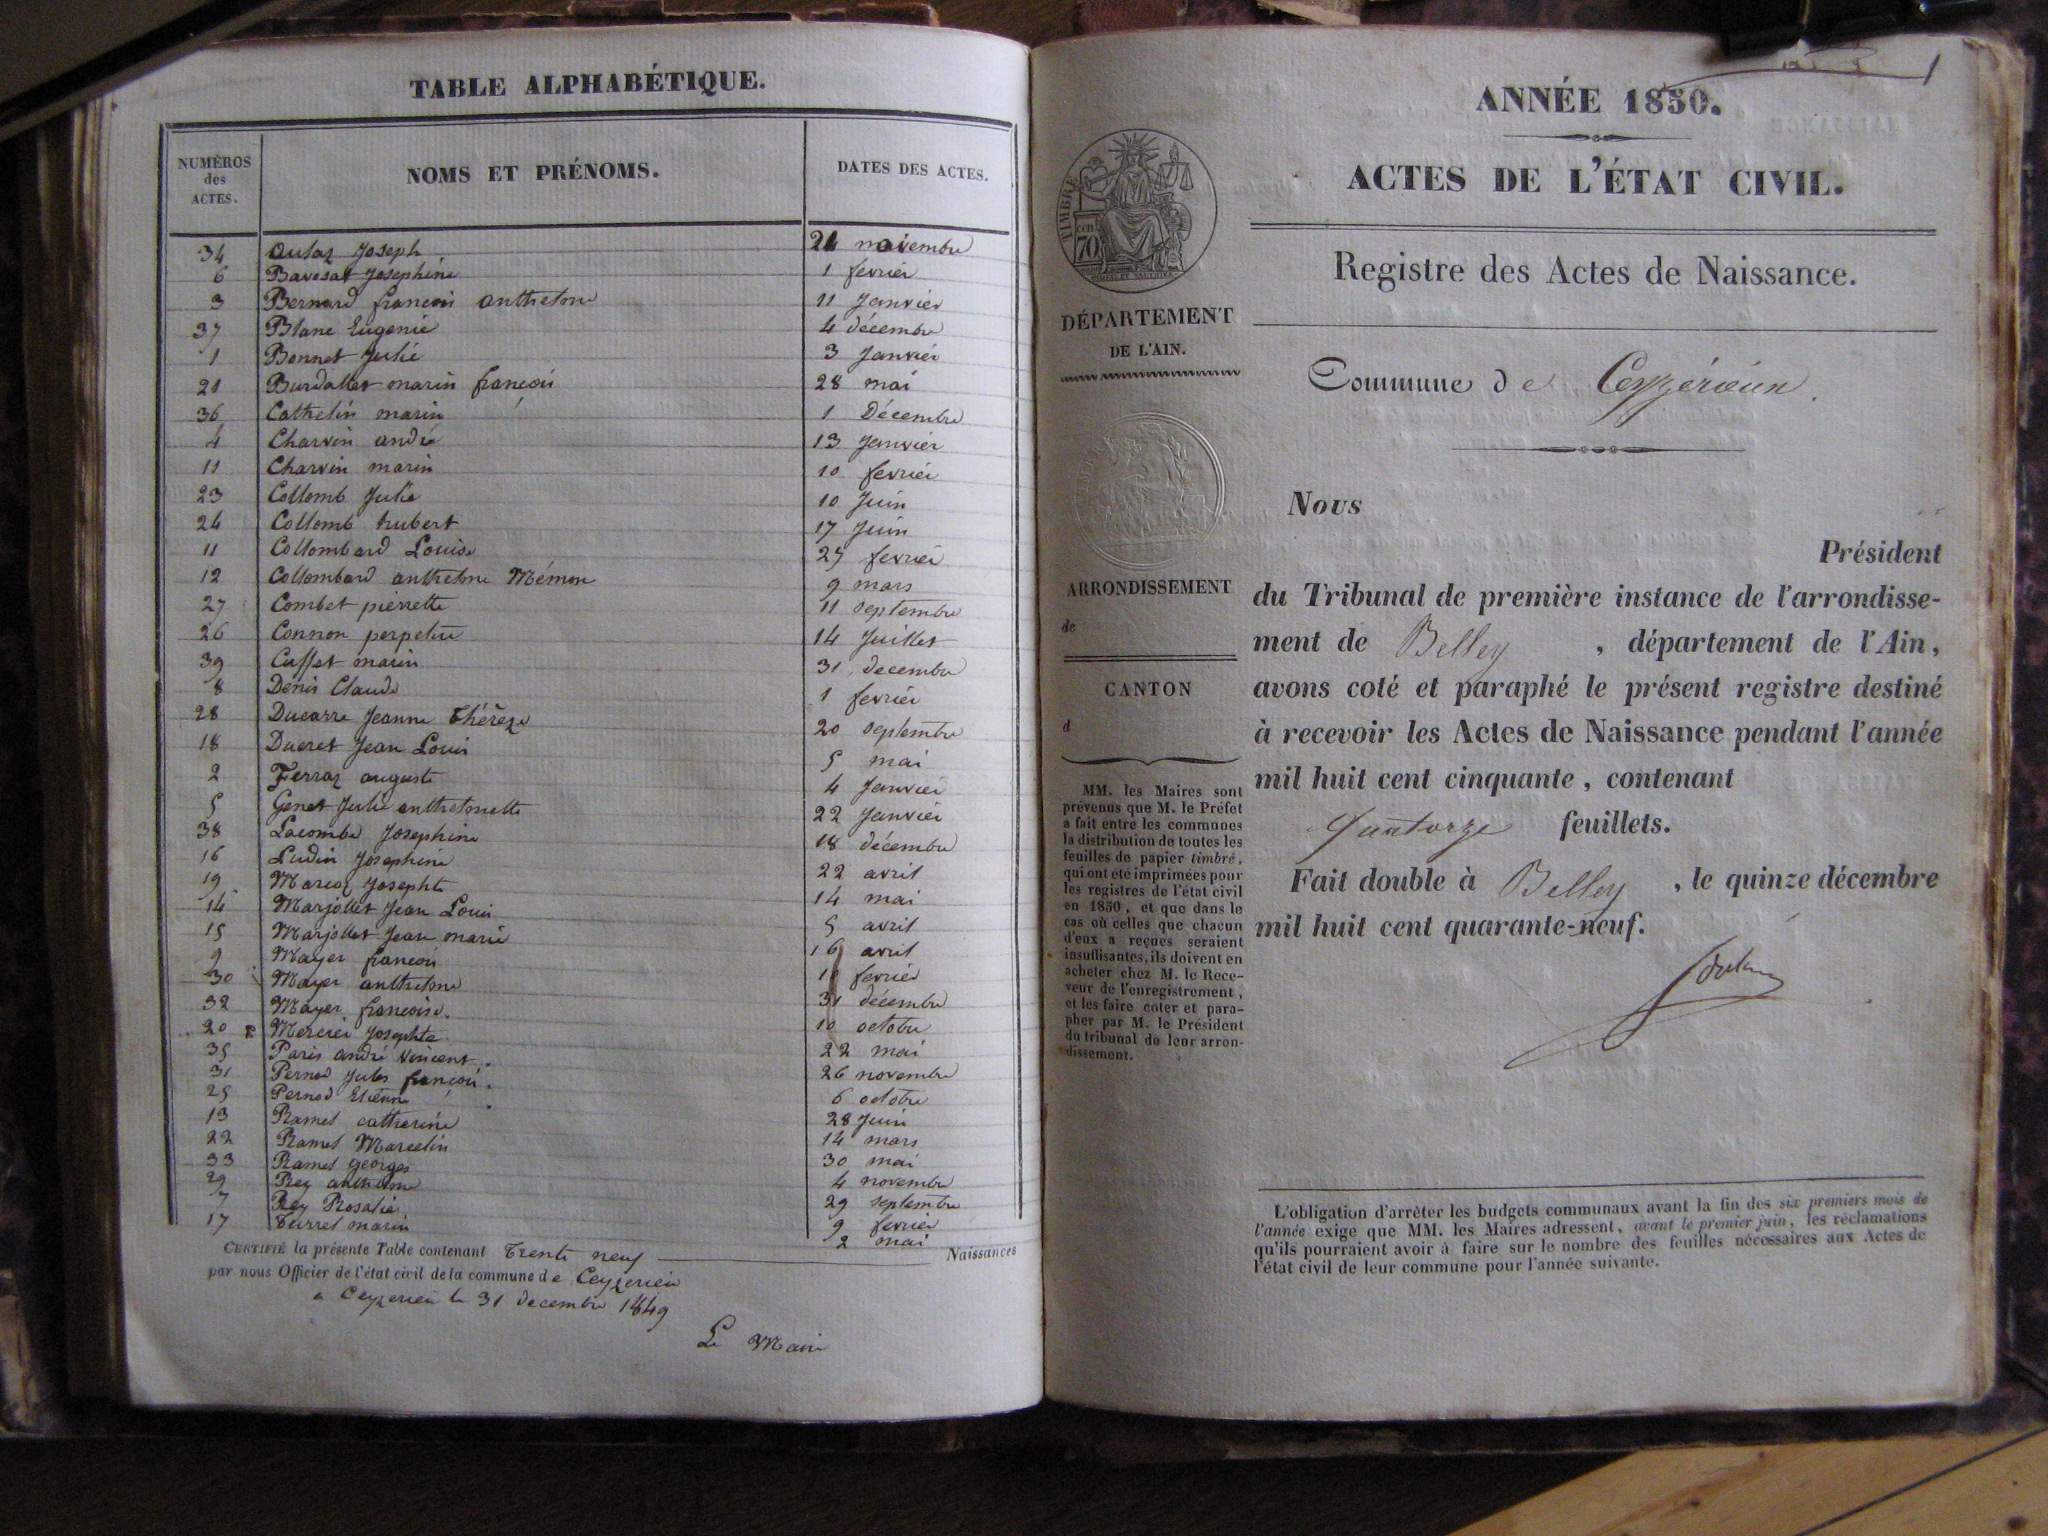 TABLE ALPHABÉTIQUE.
NUMÉROS des ACTES. NOMS ET PRÉNOMS. DATES DES ACTES.
34 Joseph 21 novembre
6 Bavosat Joséphine 1 fevrier
3 Bernard françois anthelme 11 Janvier
37 Blanc Eugenie 4 décembre
1 Bonnet Julie 3 Janvier
21 Burdallet marin françois 28 mai
36 Cathelin marin 1 Décembre
4 Charvin andré 13 Janvier
11 Charvin marin 10 fevrier
23 Collomb Julie 10 Juin
24 Collomb hubert 17 Juin
11 Collombard Louise 25 fevrier
12 Collombard anthelme Mémon 9 mars
27 Combet pierrette 11 septembre
26 Connon perpetue 14 Juillet
39 Cusset marin 31 decembre
8 Denis Claude 1 fevrier
28 Ducarre Jeanne Thérèze 20 septembre
18 Ducret Jean Louis 5 mai
2 Ferraz auguste 4 Janvier
5 Genet Julie anthelmette 22 Janvier
38 Lacombe Josephine 18 décembre
16 Ludin Josephine 22 avril
19 Marcoz Josephte 14 mai
14 Marjollet Jean Louis 5 avril
15 Marjollet Jean marie 16 avril
9 Mayer françois 10 fevrier
30 Mayer anthelme 31 décembre
32 Mayer françoise. 10 octobre
20 Mercier Josephte 22 mai
35 Paris andré vincent. 26 novembre
31 Pernod Jules françois. 6 octobre
25 Pernod Etienne 28 Juin
13 Ramel catherine 14 mars
22 Ramel Marcelin 30 mai
33 Ramel georges 4 novembre
29 Rey anthelme 29 septembre
7 Rey Rosalie 9 fevrier
17 Turrel marin 2 mai
CERTIFIÉ la présente Table contenant Trente neuf Naissances
par nous Officier de l'état civil de la commune de Ceyzerieu
a Ceyzerieu le 31 decembre 1849
Le Maire
1
ANNÉE 1850.
ACTES DE L'ÉTAT CIVIL.
Registre des Actes de Naissance.
TIMBRE
70
DÉPARTEMENT
DE L'AIN.
Commune de Ceyzérieux.
ARRONDISSEMENT
de
CANTON
d
MM. les Maires sont
prévenus que M. le Préfet
a fait entre les communes
la distribution de toutes les
feuilles de papier timbré,
qui ont été imprimées pour
les registres de l'état civil
en 1850, et que dans le
cas où celles que chacun
d'eux a reçues seraient
insuffisantes, ils doivent en
acheter chez M. le Rece-
veur de l'enregistrement,
et les faire coter et para-
pher par M. le Président
du tribunal de leur arron-
dissement.
Nous
Président
du Tribunal de première instance de l'arrondisse-
ment de Belley, département de l'Ain,
avons coté et paraphé le présent registre destiné
à recevoir les Actes de Naissance pendant l'année
mil huit cent cinquante, contenant
quatorze feuillets.
Fait double à Belley, le quinze décembre
mil huit cent quarante-neuf.
L'obligation d'arrêter les budgets communaux avant la fin des six premiers mois de
l'année exige que MM. les Maires adressent, avant le premier juin, les réclamations
qu'ils pourraient avoir à faire sur le nombre des feuilles nécessaires aux Actes de
l'état civil de leur commune pour l'année suivante.